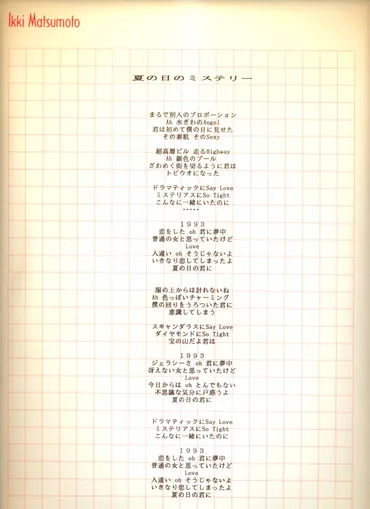 Ikki Matsumoto
夏の日のミステリー
まるで別人のプロポーション
Ah 水ぎわのAngel
君は初めて僕の目に見せた
その素肌 そのSexy
超高層ビル 走るHighway
Ah 銀色のプール
ざわめく街を切るように君は
トビウオになった
ドラマティックにSay Love
ミステリアスにSo Tight
こんなに一緒にいたのに
・・・・・
1993
恋をした oh 君に夢中
普通の女と思っていたけど
Love
人違い oh そうじゃないよ
いきなり恋してしまったよ
夏の日の君に
服の上からは計れないね
Ah 色っぽいチャーミング
僕の回りをうろついた君に
意識してしまう
スキャンダラスにSay Love
ダイヤモンドにSo Tight
宝の山だよ君は
1993
ジェラシーさ oh 君に夢中
冴えない女と思っていたけど
Love
今日からは oh とんでもない
不思議な気分に戸惑うよ
夏の日の君に
ドラマティックにSay Love
ミステリアスにSo Tight
こんなに一緒にいたのに
1993
恋をした oh 君に夢中
普通の女と思っていたけど
Love
人違い oh そうじゃないよ
いきなり恋してしまったよ
夏の日の君に